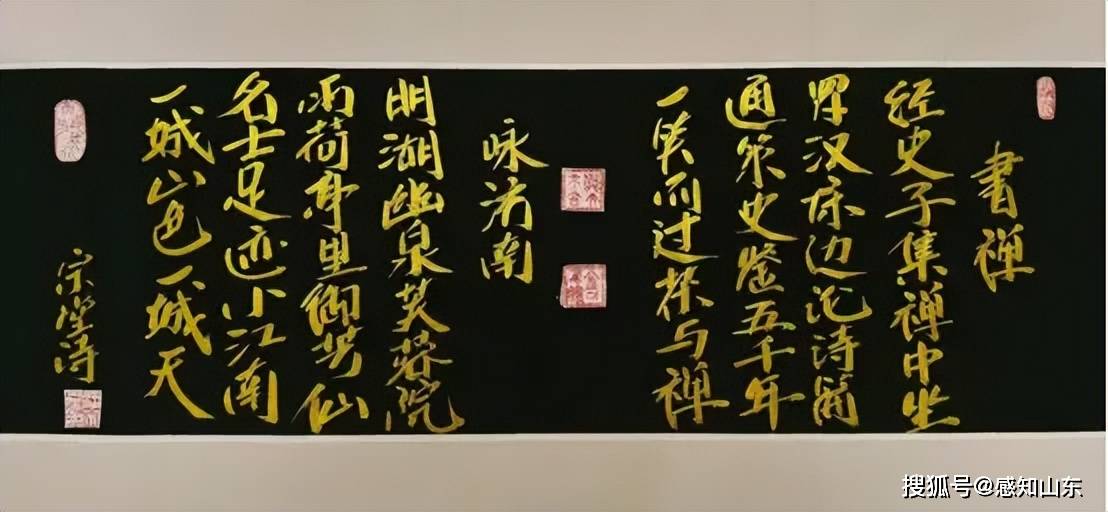 書禅
经史子集禅中坐
汉床边论诗篇
通策史鉴五千年
一笑而过茶与禅
咏济南
明湖幽泉芙蓉院
雨荷亭里御芳仙
名士足迹小江南
一城山色一城天
宗涛
搜狐号@感知山东